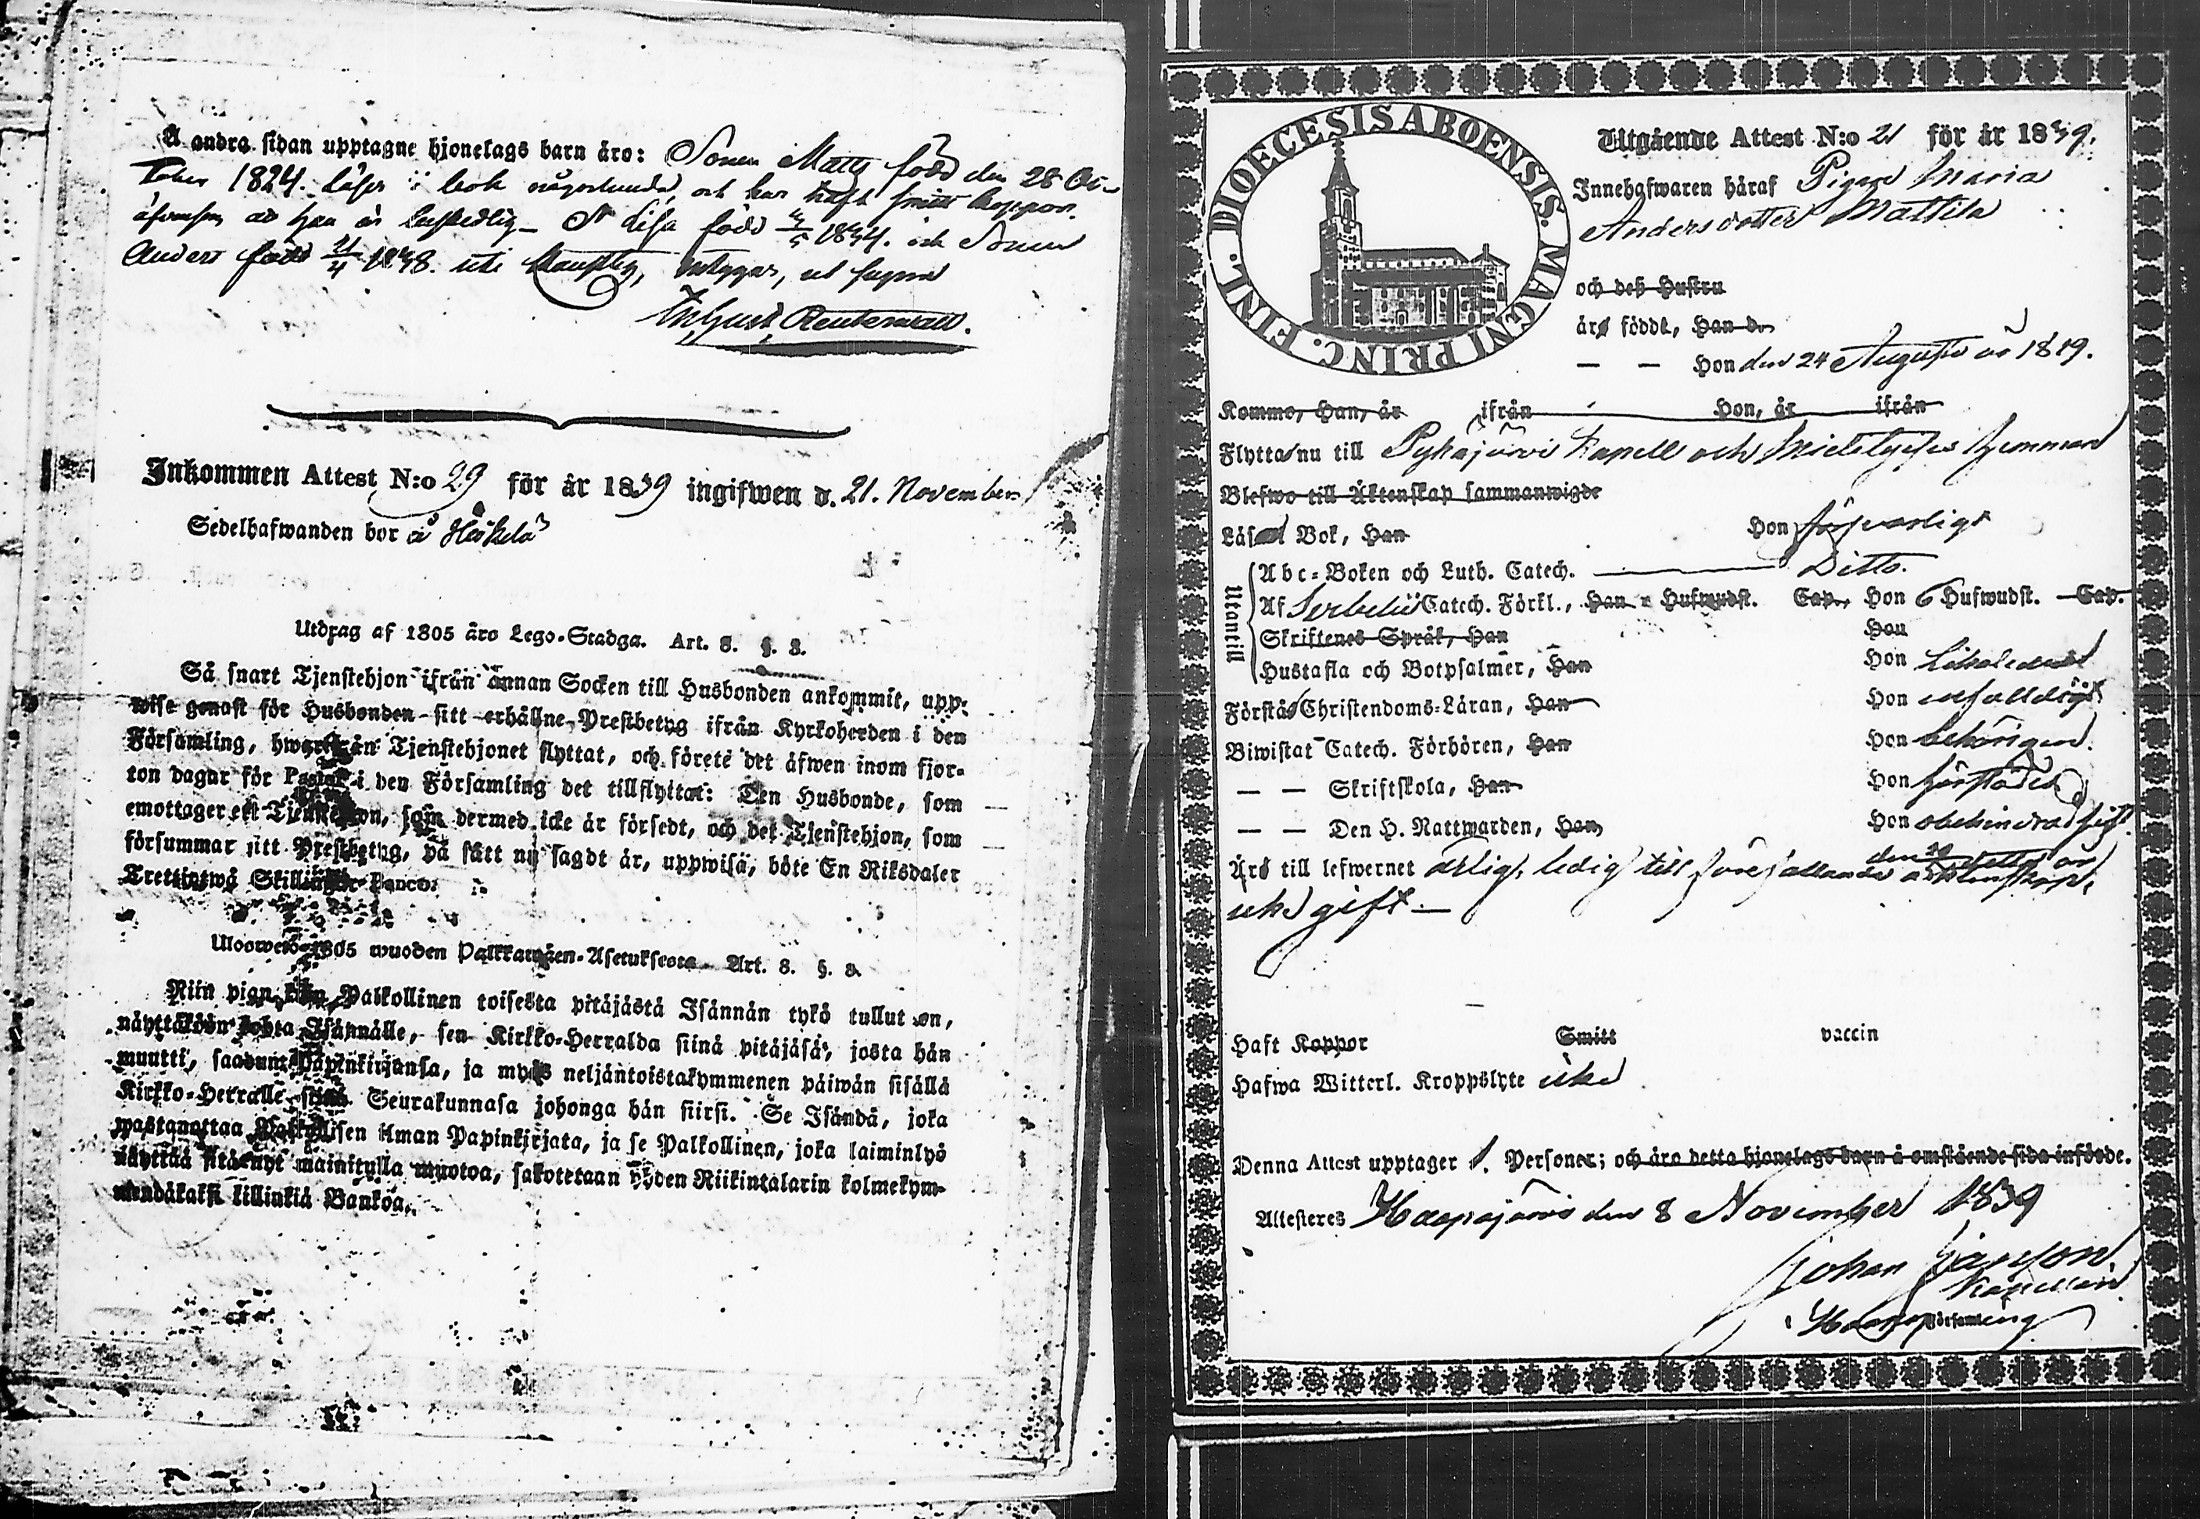 Å andra sidan upptagne hjonelags barn äro: Sonen Matts född den 28 Oc-
tober 1824. Läser i bok någorlunda, och har haft smitt koppor.
Lisa född 4/5 1834. och Sonen
Anders född 21/4 1838. intygar, ut supra
Reuterwall.
Inkommen Attest N:o 29 för år 1839 ingifwen d. 21. November
Sedelhafwanden bor å
Utdrag af 1805 års Lego-Stadga. Art. 8. §. 8.
Så snart Tjenstehjon ifrån annan Socken till Husbonden ankommit, upp-
wise genast för Husbonden sitt erhållne Prestbetyg ifrån Kyrkoherden i den
Församling, hwarifrån Tjenstehjonet flyttat, och förete det äfwen inom fjor-
ton dagar för Pastor i den Församling det tillflyttat: Den Husbonde, som
emottager ett Tjenstehjon, som dermed icke är försedt, och det Tjenstehjon, som
försummar sitt Prestbetyg, på sätt nu sagdt är, uppwisa, böte En Riksdaler
Trettiotwå Skillingar Banco.
Uloswedo 1805 wuoden Palkkawäen-Asetuksesta. Art. 8. §. 8.
Niin pian kuin Palkollinen toisesta pitäjästä Isännän tykö tullut on,
näyttäköön kohta Isännälle, sen Kirkko-Herralda siinä pitäjäsä, josta hän
muutti, saadunt Papinkirjansa, ja myös neljäntoistakymmenen päiwän sisällä
Kirkko-Herralle siinä Seurakunnasa johonga hän siirsi. Se Isändä, joka
wastanottaa Palkollisen ilman Papinkirjata, ja se Palkollinen, joka laiminlyö
näyttää sitä nyt mainitulla muotoa, sakotetaan yhden Riikintalarin kolmekym-
mendäkaksi killinkiä Bankoa.
DIOECESIS ABOENSIS. MAGNI PRINC. FINL.
Utgående Attest N:o 21 för år 1839.
Innehafwaren häraf Pigan Maria
Andersdotter Mattila
och dess Hustru
äro född, Han d.
— — Hon den 24 Augusti år 1819.
Kommo, Han, år ifrån Hon, år ifrån
Flytta nu till Pyhäjärvi Kapell och
Blefwo till Äktenskap sammanwigde
Läsa Bok, Han Hon förswarligt
Utantill
Abc-Boken och Luth. Catech. Ditto.
Af Serbelii Catech. Förkl., Han Hufwudst. Cap., Hon 6 Hufwudst. Cap.
Skriftenes Språk, Han Hon
Hustafla och Botpsalmer, Han Hon Likaledes
Förstå Christendoms-Läran, Han Hon enfaldigt
Biwistat Catech. Förhören, Han Hon behörigen.
— — Skriftskola, Han Hon
— — Den H. Nattwarden, Han Hon obehindrad
Äro till lefwernet ärlig, ledig till förefallande äktenskap,
gift.
Haft Koppor Smitt vaccin
Hafwa Witterl. Kroppslyte icke
Denna Attest upptager 1. Personer; och äro detta hjonelags barn å omstående sida införde.
Attesteres Haapajärvi den 8 November 1839
Johan Janson
Kapellan
Haapaj. Församling